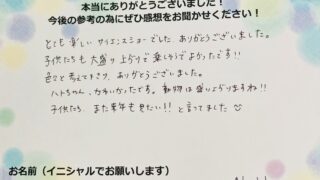 本当にありがとうございました！
今後の参考の為にぜひ感想をお聞かせください！
とても楽しいサイエンスショーでした ありがとうございました。
子供たちも大盛り上がりで楽しそうでよかったです!!
色々と考えて下さり、ありがとうございました。
ハトちゃん、かわいかったです。動物は盛り上がりますね!!
子供たち、また来年も見たい!! と言ってました☺
お名前（イニシャルでお願いします）